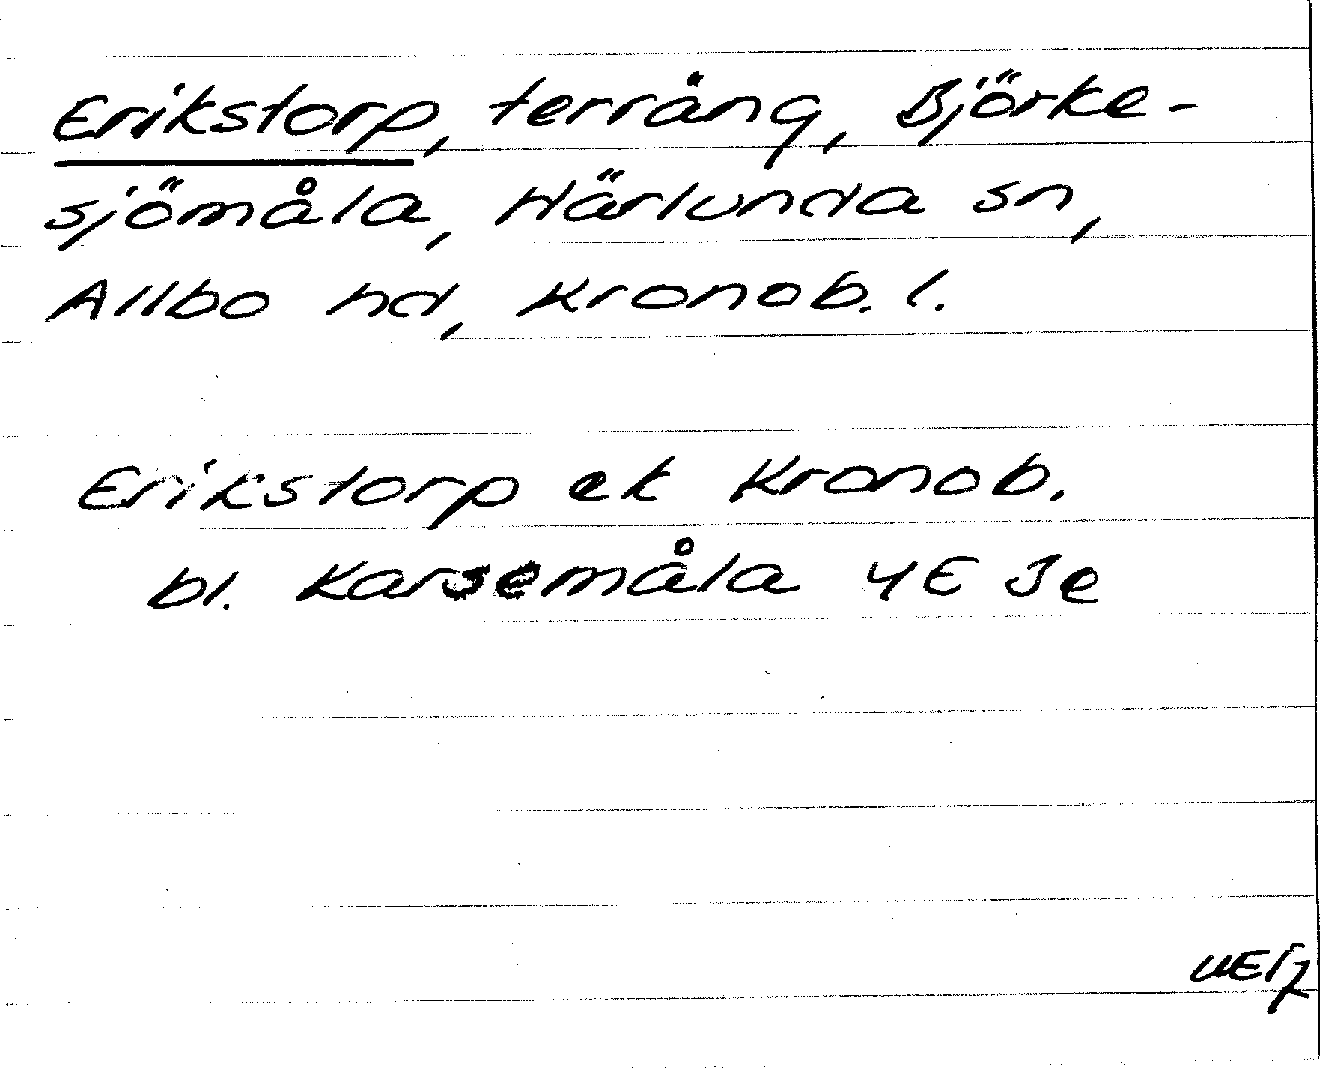 Erikstorp, terräng, Björke-
sjömåla, Härlunda sn,
Allbo hd, Kronob. l.
Erikstorp ek Kronob.
bl. Karsemåla 4E Je